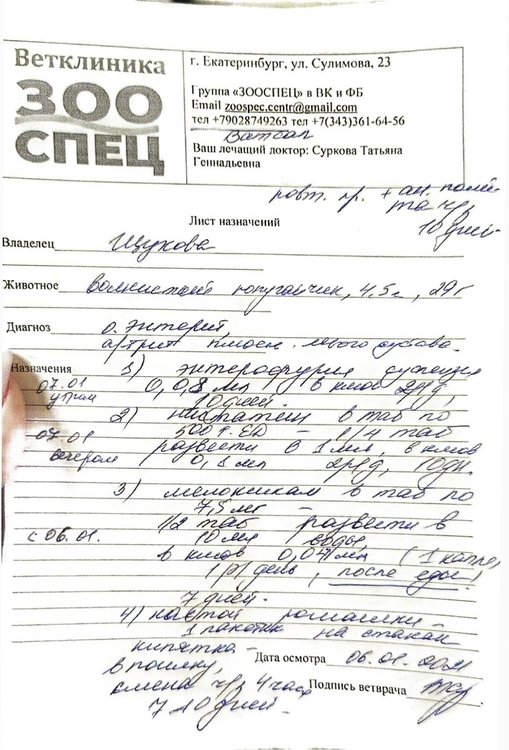 Ветклиника
ЗОО
СПЕЦ
г. Екатеринбург, ул. Сулимова, 23
Группа «ЗООСПЕЦ» в ВК и ФБ
Email zoospec.centr@gmail.com
тел +79028749263 тел +7(343)361-64-56
Ватсап
Ваш лечащий доктор: Суркова Татьяна
Геннадьевна
повт. пр. + ан. помёта
10 дней
Лист назначений
Владелец Щукова
Животное волнистый попугайчик, 4,5 г, 29 г
Диагноз о. энтерит,
артрит левого сустава
Назначения 1) энтерофурил суспензия
07.01 утром в клюв 2 р/д,
10 дней.
2) нистатин в таб по
500 т. ЕД – 1/4 таб
07.01 развести в 1 мл, в клюв
вечером 2 р/д, 10 дн.
3) мелоксикам в таб по
7,5 мг –
1/2 таб развести в
с 06.01. 10 мл воды,
в клюв (1 капля)
1 р/день, после еды!
7 дней.
4) настой ромашки –
1 пакетик на стакан
кипятка –
в поилку,
смена ч/з 4 часа
7-10 дней.
Дата осмотра 06.01.2021
Подпись ветврача